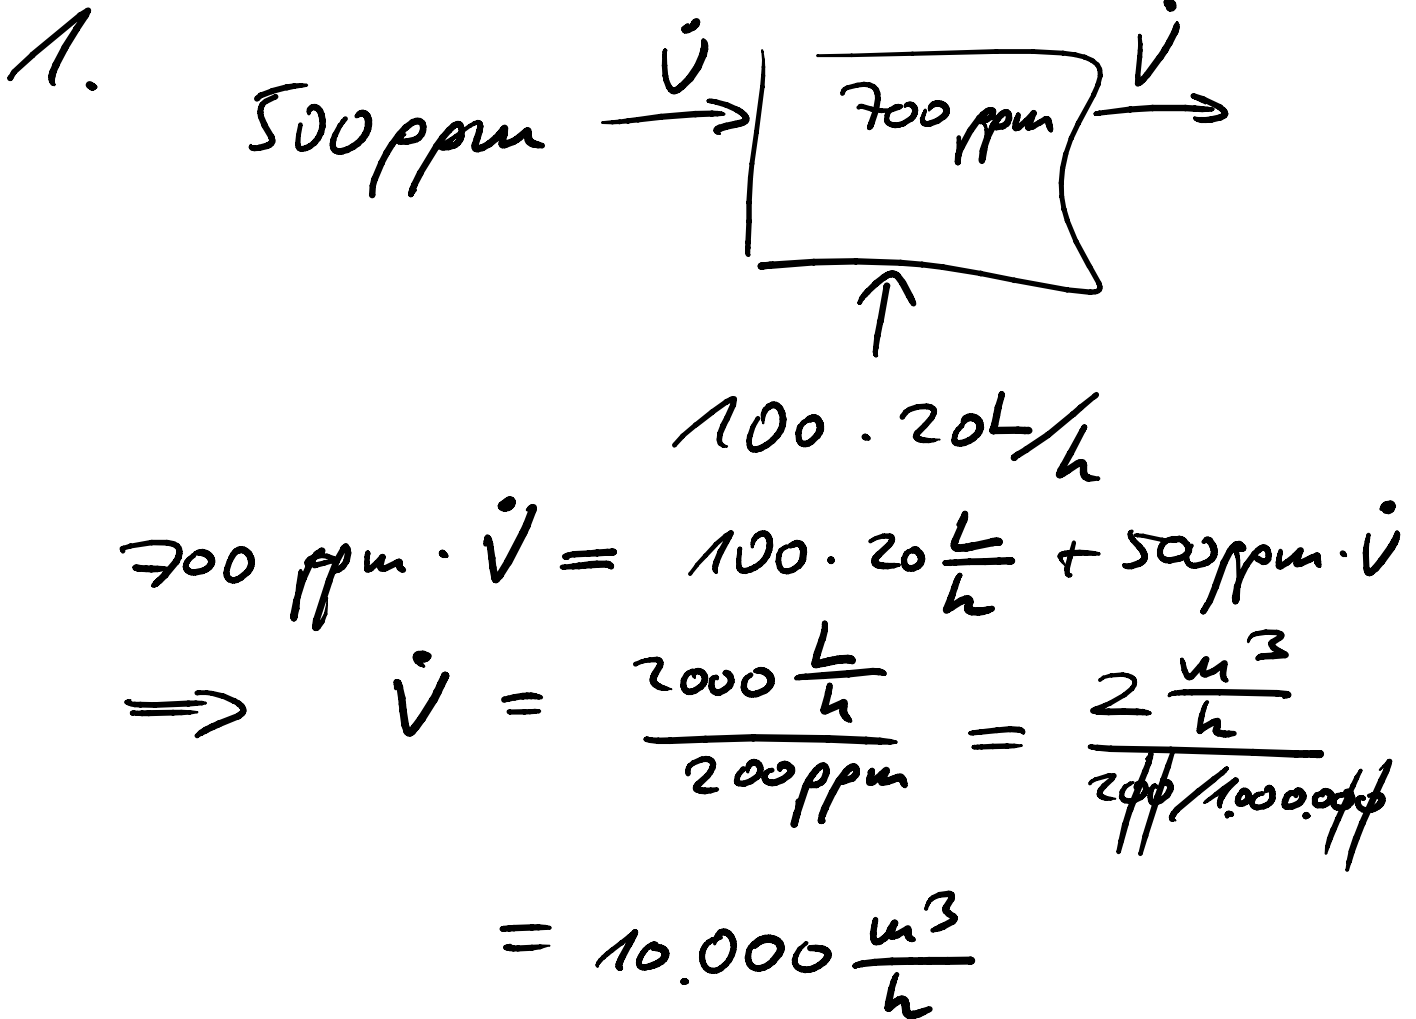 1.
V̇ V̇
500 ppm 700 ppm
100 · 20 L/h
700 ppm · V̇ = 100 · 20 L/h + 500 ppm · V̇
⟹ V̇ = 2000 L/h / 200 ppm = 2 m³/h / 200/1.000.000
= 10.000 m³/h